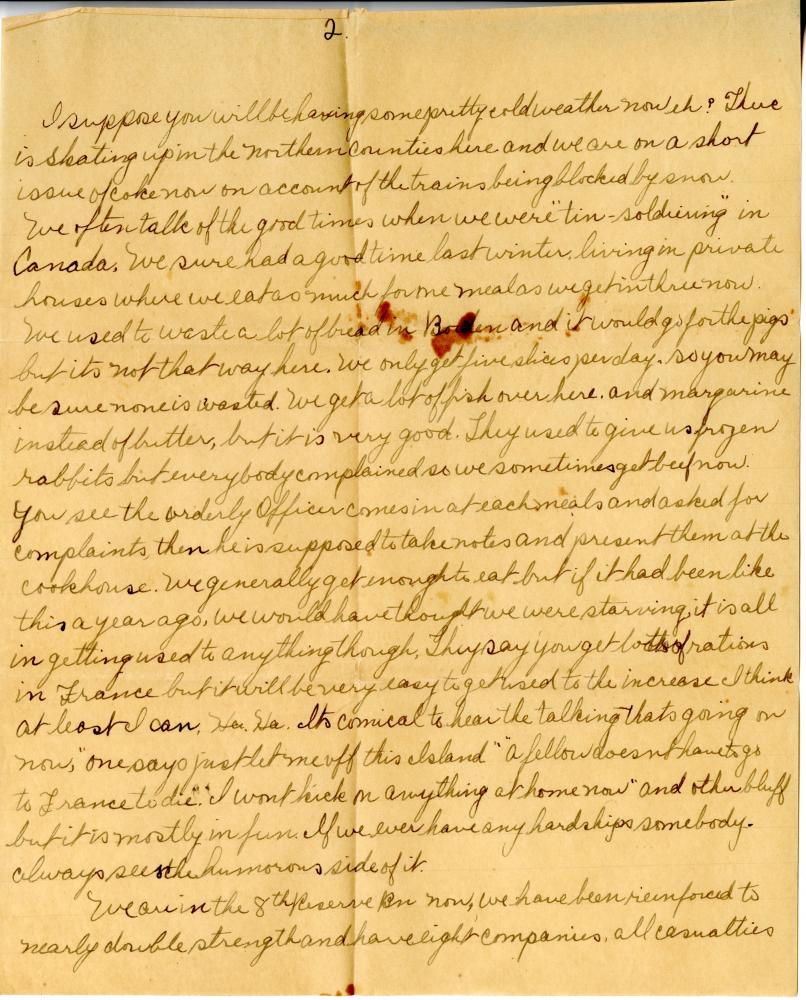 2.
I suppose you will be having some pretty cold weather now eh? There
is skating up in the northern counties here and we are on a short
issue of coke now on account of the trains being blocked by snow.
We often talk of the good times when we were "tin-soldiering" in
Canada. We sure had a good time last winter, living in private
houses where we eat as much for one meal as we get in three now.
We used to waste a lot of bread in Borden and it would go for the pigs
but its not that way here. We only get five slices per day. so you may
be sure none is wasted. We get a lot of fish over here. and margarine
instead of butter, but it is very good. They used to give us frozen
rabbits but everybody complained so we sometimes get beef now.
You see the orderly Officer comes in at each meals and asked for
complaints, then he is supposed to take notes and present them at the
cookhouse. We generally get enough to eat but if it had been like
this a year ago, we would have thought we were starving, it is all
in getting used to anything though. They say you get lots of rations
in France but it will be very easy to get used to the increase I think
at least I can, Ha. Ha. Its comical to hear the talking thats going on
now, "one says just let me off this Island" "a fellow doesnt have to go
to France to die". "I wont kick on anything at home now" and other bluff
but it is mostly in fun. If we ever have any hardships somebody
always sees the humorous side of it.
We are in the 8th Reserve Bn now, we have been reinforced to
nearly double strength and have eight companies, all casualties